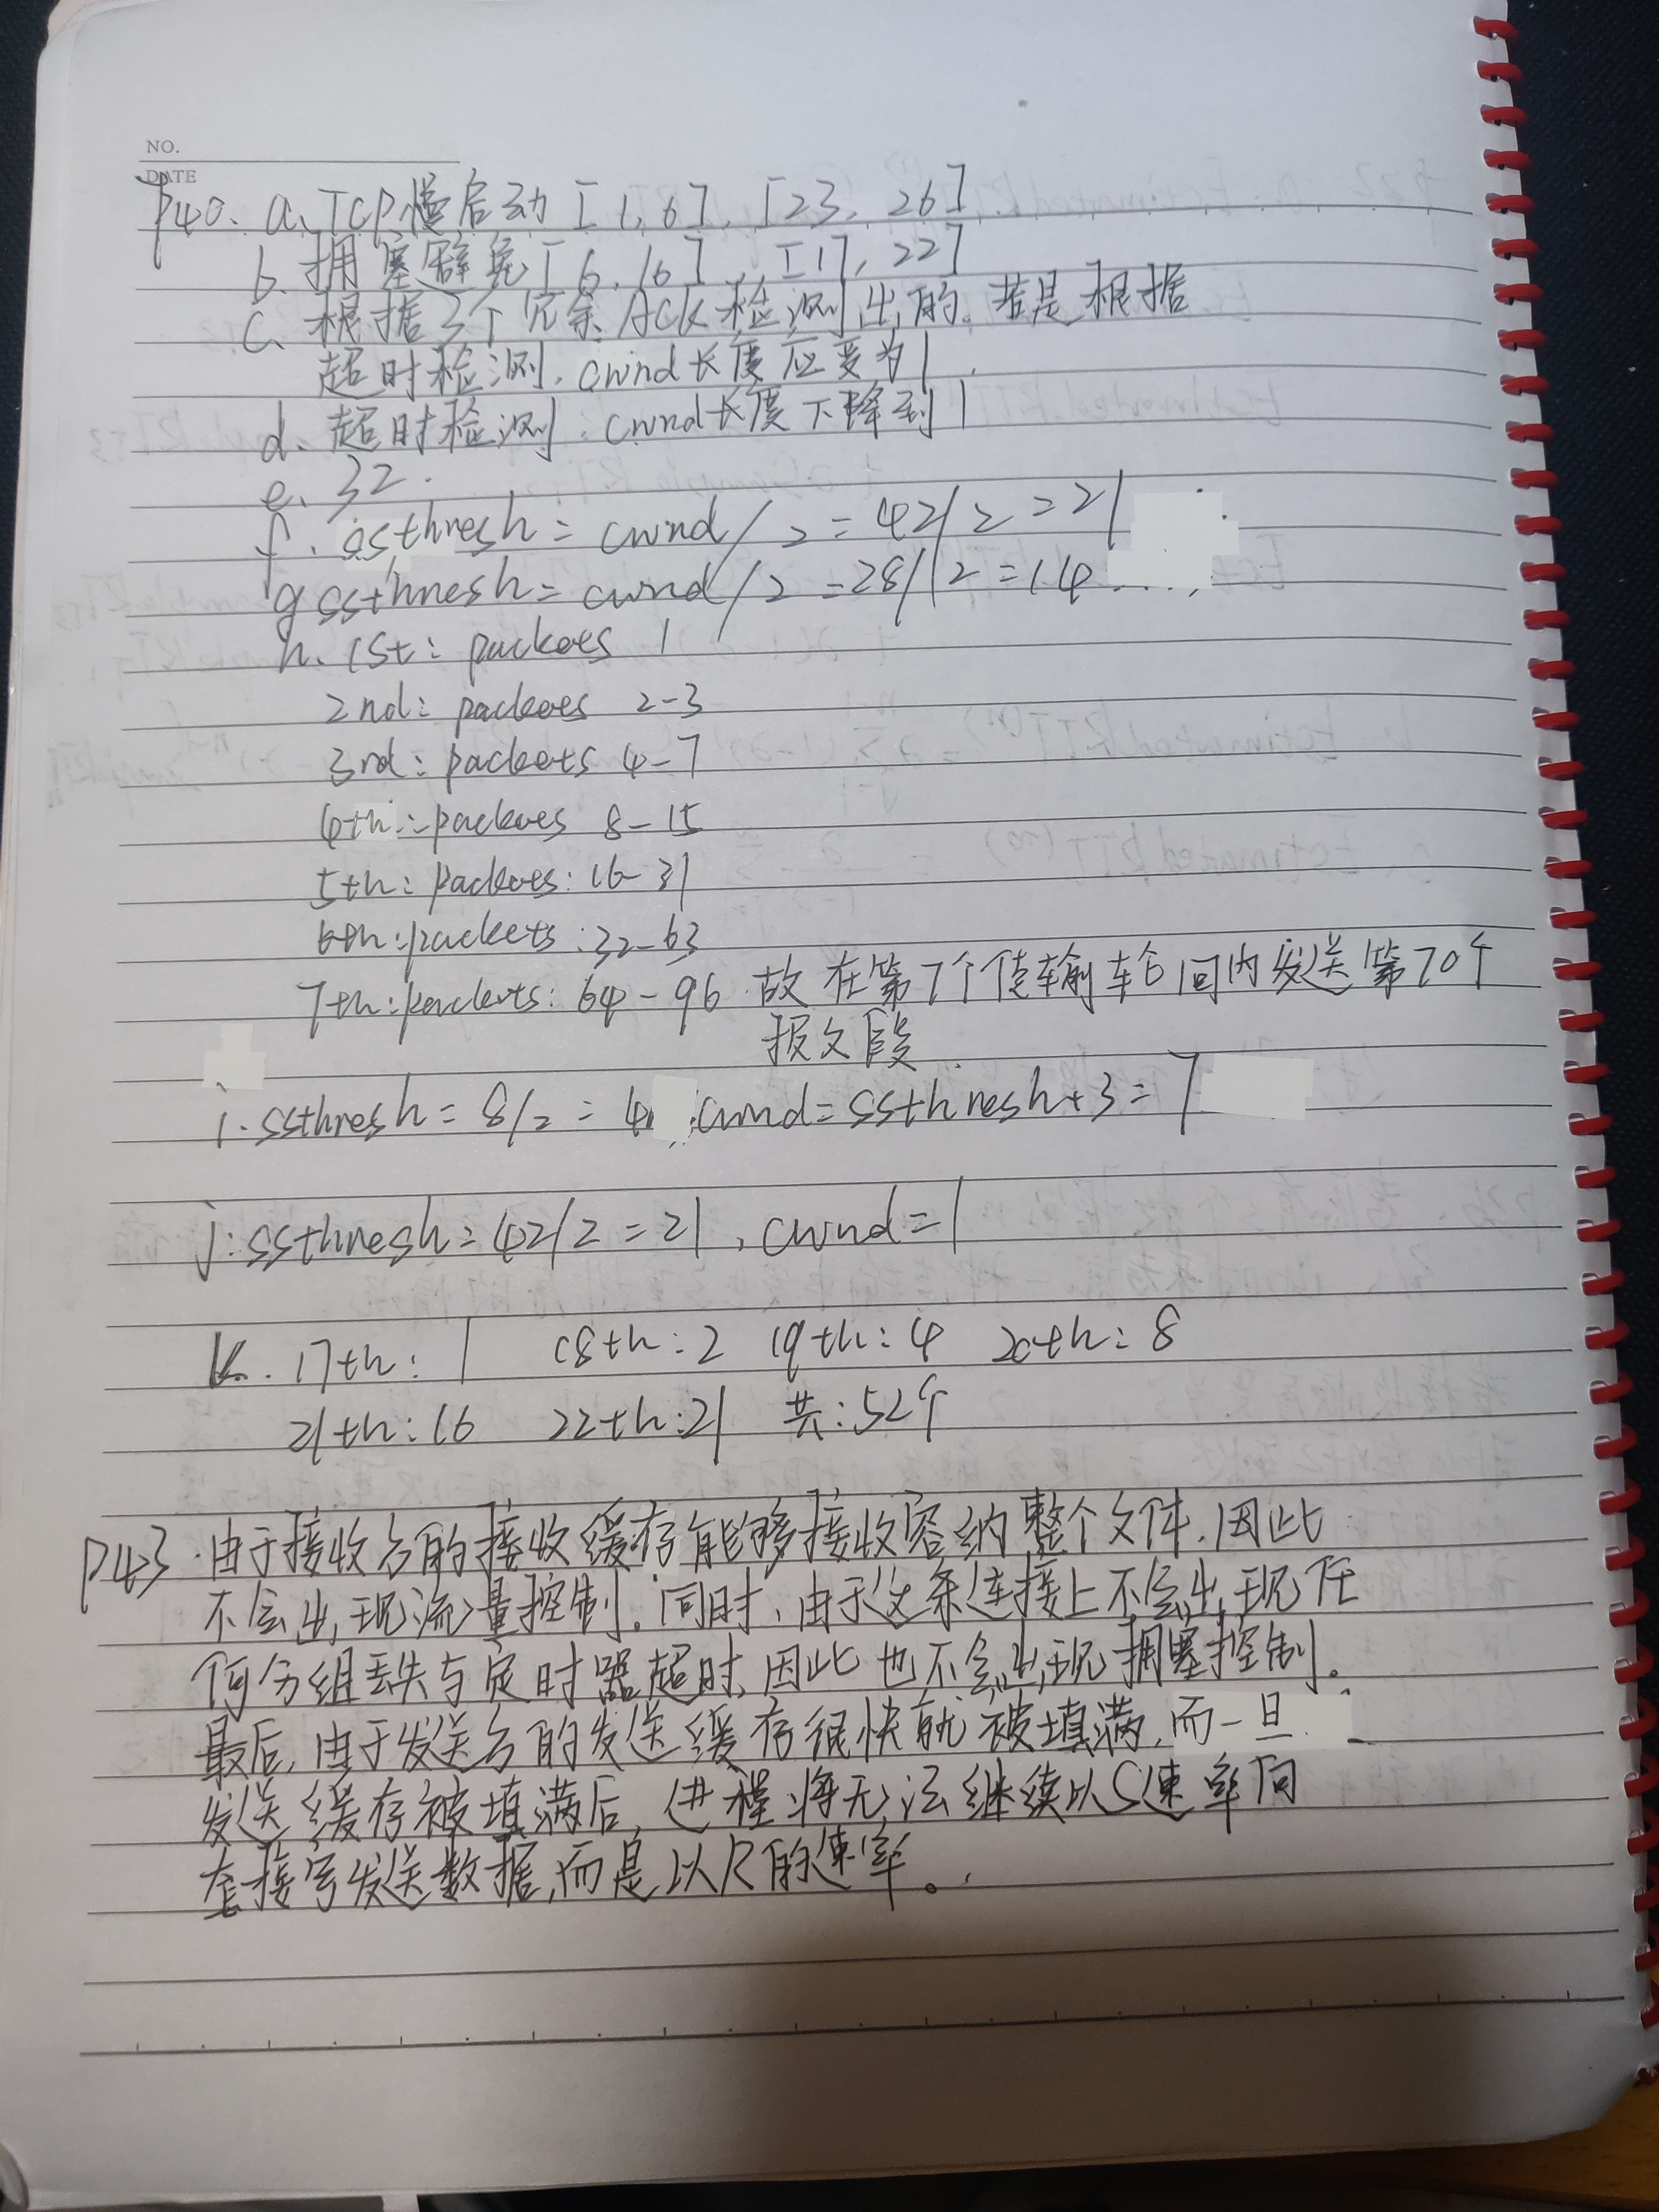 NO.
DATE
P40. a. TCP慢启动 [1,6], [23, 26]
b. 拥塞避免 [6, 16], [17, 22]
c. 根据3个冗余ACK检测出的. 若是根据
超时检测, cwnd长度应变为1.
d. 超时检测, cwnd长度下降到1
e. 32.
f. ssthresh = cwnd/2 = 42/2 = 21
g ssthresh = cwnd/2 = 28/2 = 14
h. 1st: packets 1
2nd: packets 2-3
3rd: packets 4-7
4th: packets 8-15
5th: packets: 16-31
6th: packets: 32-63
7th: packets: 64-96 故在第7个传输轮回内发送第70个
报文段.
i. ssthresh = 8/2 = 4 cwnd = ssthresh+3 = 7
j: ssthresh = 42/2 = 21, cwnd = 1
k. 17th: 1 18th: 2 19th: 4 20th: 8
21th: 16 22th: 21 共: 52个
P43. 由于接收方的接收缓存能够接收容纳整个文件, 因此
不会出现流量控制. 同时, 由于这条连接上不会出现任
何分组丢失与定时器超时, 因此也不会出现拥塞控制。
最后, 由于发送方的发送缓存很快就被填满, 而一旦
发送缓存被填满后, 进程将无法继续以S速率向
套接字发送数据, 而是以R的速率。